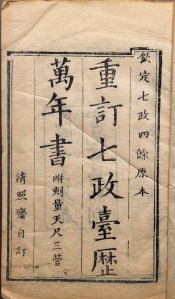 欽定七政四餘原本
重訂七政臺曆
萬年書
附刻量天尺三管
清照齋自訂